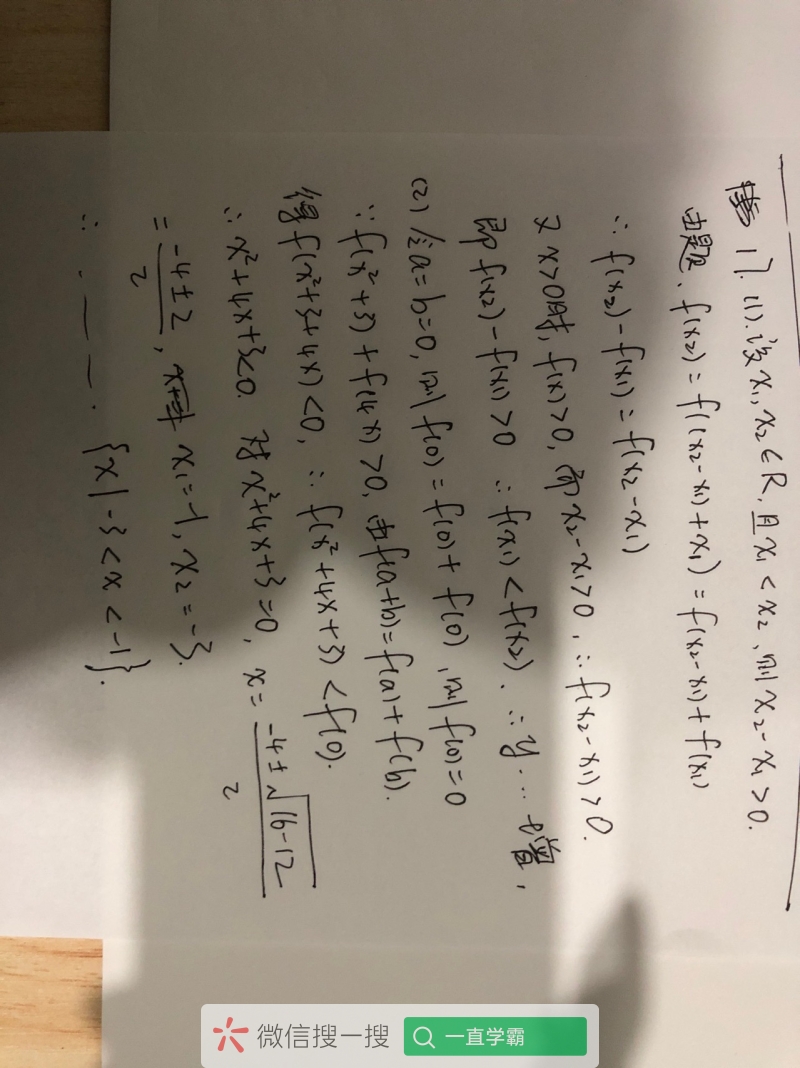 17. (1). 设 x₁, x₂ ∈ R, 且 x₁ < x₂, 则 x₂ - x₁ > 0.
由题, f(x₂) = f((x₂-x₁)+x₁) = f(x₂-x₁) + f(x₁)
∴ f(x₂) - f(x₁) = f(x₂-x₁)
又 x>0时, f(x)>0, 而 x₂-x₁>0, ∴ f(x₂-x₁)>0.
即 f(x₂) - f(x₁) >0 ∴ f(x₁) < f(x₂). ∴ y … 增,
(2) 令a=b=0, 则 f(0) = f(0) + f(0), 则 f(0)=0
∵ f(x²+3) + f(4x) >0, 由 f(a+b) = f(a) + f(b).
得 f(x²+3+4x) <0, ∴ f(x²+4x+3) < f(0).
∴ x²+4x+3<0. 对 x²+4x+3=0, x = \frac{-4±\sqrt{16-12}}{2}
= \frac{-4±2}{2}, x₁=-1, x₂=-3.
∴ · — — . {x|-3<x<-1}.
微信搜一搜 一直学霸